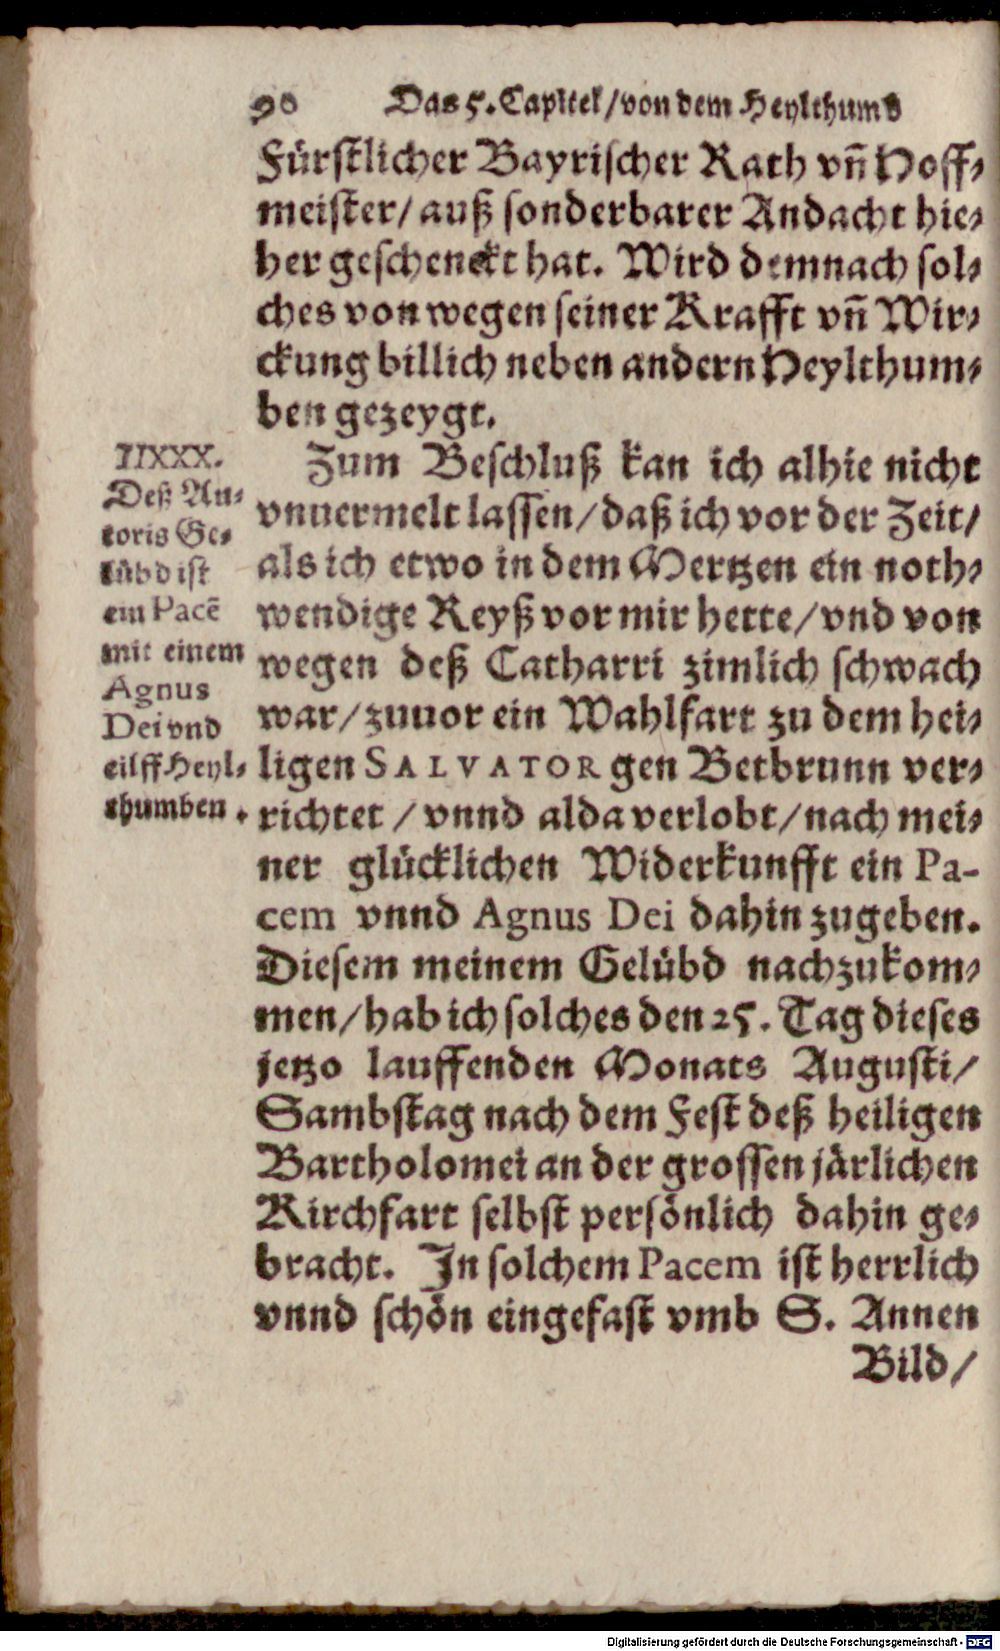 90 Das 5. Capittel/von dem Heylthumb
Fürstlicher Bayrischer Rath vñ Hoff-
meister/auß sonderbarer Andacht hie-
her geschenckt hat. Wird demnach sol-
ches von wegen seiner Krafft vñ Wir-
ckung billich neben andern Heylthum-
ben gezeygt.
IIXXX.
Deß Au-
toris Ge-
lübd ist
ein Pacē
mit einem
Agnus
Dei vnd
eilff Heyl-
thumben.
Zum Beschluß kan ich alhie nicht
vnuermelt lassen/daß ich vor der Zeit/
als ich etwo in dem Mertzen ein noth-
wendige Reyß vor mir hette/vnd von
wegen deß Catharri zimlich schwach
war/zuuor ein Wahlfart zu dem hei-
ligen SALVATOR gen Betbrunn ver-
richtet/vnnd alda verlobt/nach mei-
ner glücklichen Widerkunfft ein Pa-
cem vnnd Agnus Dei dahin zugeben.
Diesem meinem Gelübd nachzukom-
men/hab ich solches den 25. Tag dieses
jetzo lauffenden Monats Augusti/
Sambstag nach dem Fest deß heiligen
Bartholomei an der grossen järlichen
Kirchfart selbst persönlich dahin ge-
bracht. In solchem Pacem ist herrlich
vnnd schön eingefast vmb S. Annen
Bild/
Digitalisierung gefördert durch die Deutsche Forschungsgemeinschaft - DFG